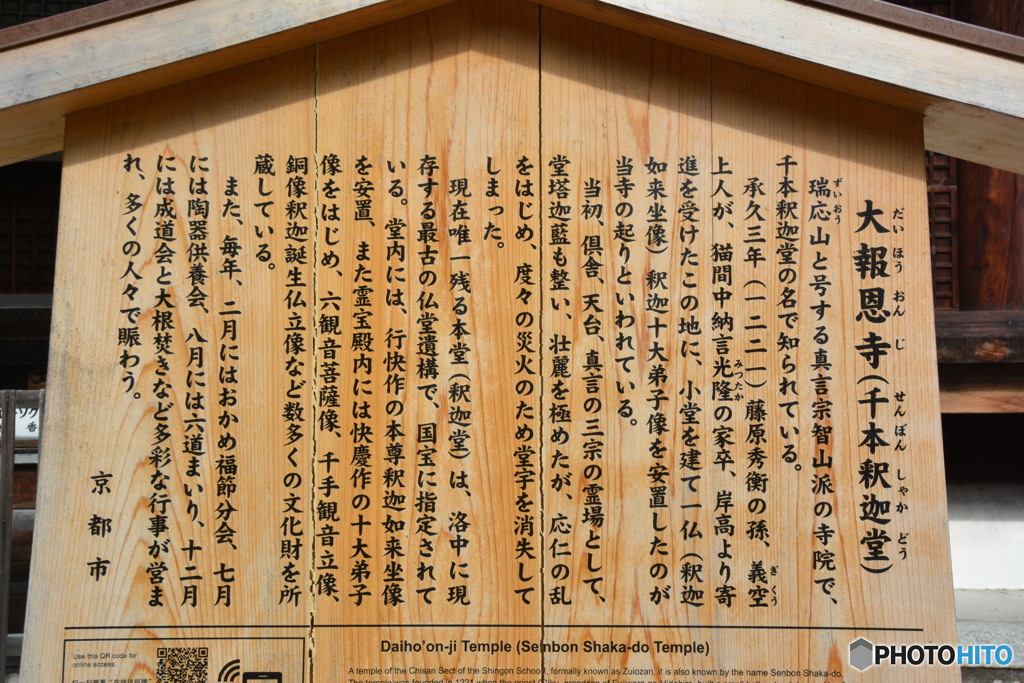 大報恩寺(千本釈迦堂)
だいほうおんじ せんぼんしゃかどう
瑞応山と号する真言宗智山派の寺院で、
ずいおう
千本釈迦堂の名で知られている。
承久三年(一二二一)藤原秀衡の孫、義空
ぎくう
上人が、猫間中納言光隆の家卒、岸高より寄
みつたか
進を受けたこの地に、小堂を建て一仏(釈迦
如来坐像)釈迦十大弟子像を安置したのが
当寺の起りといわれている。
当初、倶舎、天台、真言の三宗の霊場として、
堂塔迦藍も整い、壮麗を極めたが、応仁の乱
をはじめ、度々の災火のため堂宇を消失して
しまった。
現在唯一残る本堂(釈迦堂)は、洛中に現
存する最古の仏堂遺構で、国宝に指定されて
いる。堂内には、行快作の本尊釈迦如来坐像
を安置、また霊宝殿内には快慶作の十大弟子
像をはじめ、六観音菩薩像、千手観音立像、
銅像釈迦誕生仏立像など数多くの文化財を所
蔵している。
また、毎年、二月にはおかめ福節分会、七月
には陶器供養会、八月には六道まいり、十二月
には成道会と大根焚きなど多彩な行事が営ま
れ、多くの人々で賑わう。
京都市
Daiho'on-ji Temple (Senbon Shaka-do Temple)
A temple of the Chisan Sect of the Shingon School, formally known as Zuiozan, it is also known by the name Senbon Shaka-do.
Use this QR code for
online access.
PHOTOHITO